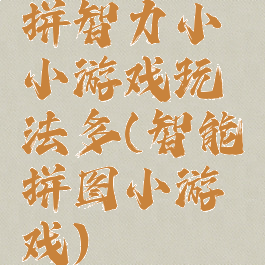 拼智力小
小游戏玩
法多(智能
拼图小游
戏)